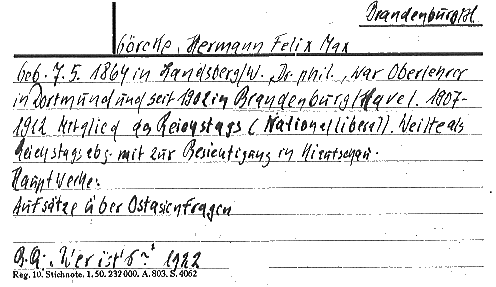 Brandenburg/H.
Görcke, Hermann Felix Max
geb. 7.5. 1864 in Landsberg/W., Dr. phil., war Oberlehrer
in Dortmund und seit 1902 in Brandenburg/Havel. 1907-
1912 Mitglied des Reichstags (Nationalliberal). Weilte als
Reichstagsabg. mit zur Besichtigung in Kiautschau.
Hauptwerke:
Aufsätze über Ostasienfragen
B.Q.: Wer ist's? 1922
Reg. 10. Stichnote. 1. 50. 232 000. A. 803. S. 4062